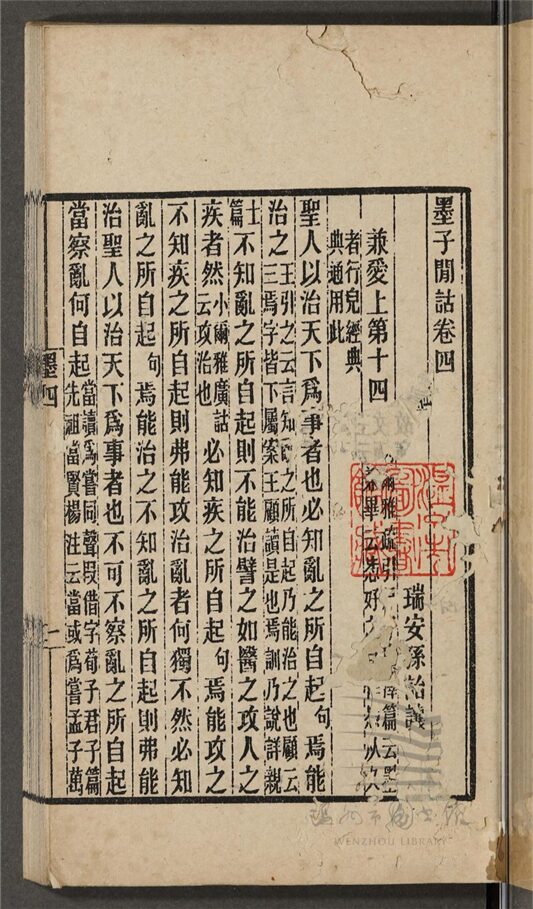 墨子閒詁卷四
瑞安孫詒讓
兼愛上第十四
爾雅疏引
篇云墨
畢云
好
者行皃經典
典通用此
聖人以治天下爲事者也必知亂之所自起句焉能
治之王引之云言知亂之所自起乃能治之也顧云
三焉字皆下屬案王顧讀是也焉訓乃說詳親
士篇不知亂之所自起則不能治譬之如醫之攻人之
疾者然小爾雅廣詁云攻治也必知疾之所自起句焉能攻之
不知疾之所自起則弗能攻治亂者何獨不然必知
亂之所自起句焉能治之不知亂之所自起則弗能
治聖人以治天下爲事者也不可不察亂之所自起
當察亂何自起當讀爲嘗同聲叚借字荀子君子篇
先祖當賢楊注云當或爲嘗孟子萬
墨四
一
溫州市圖書館
WENZHOU LIBRARY